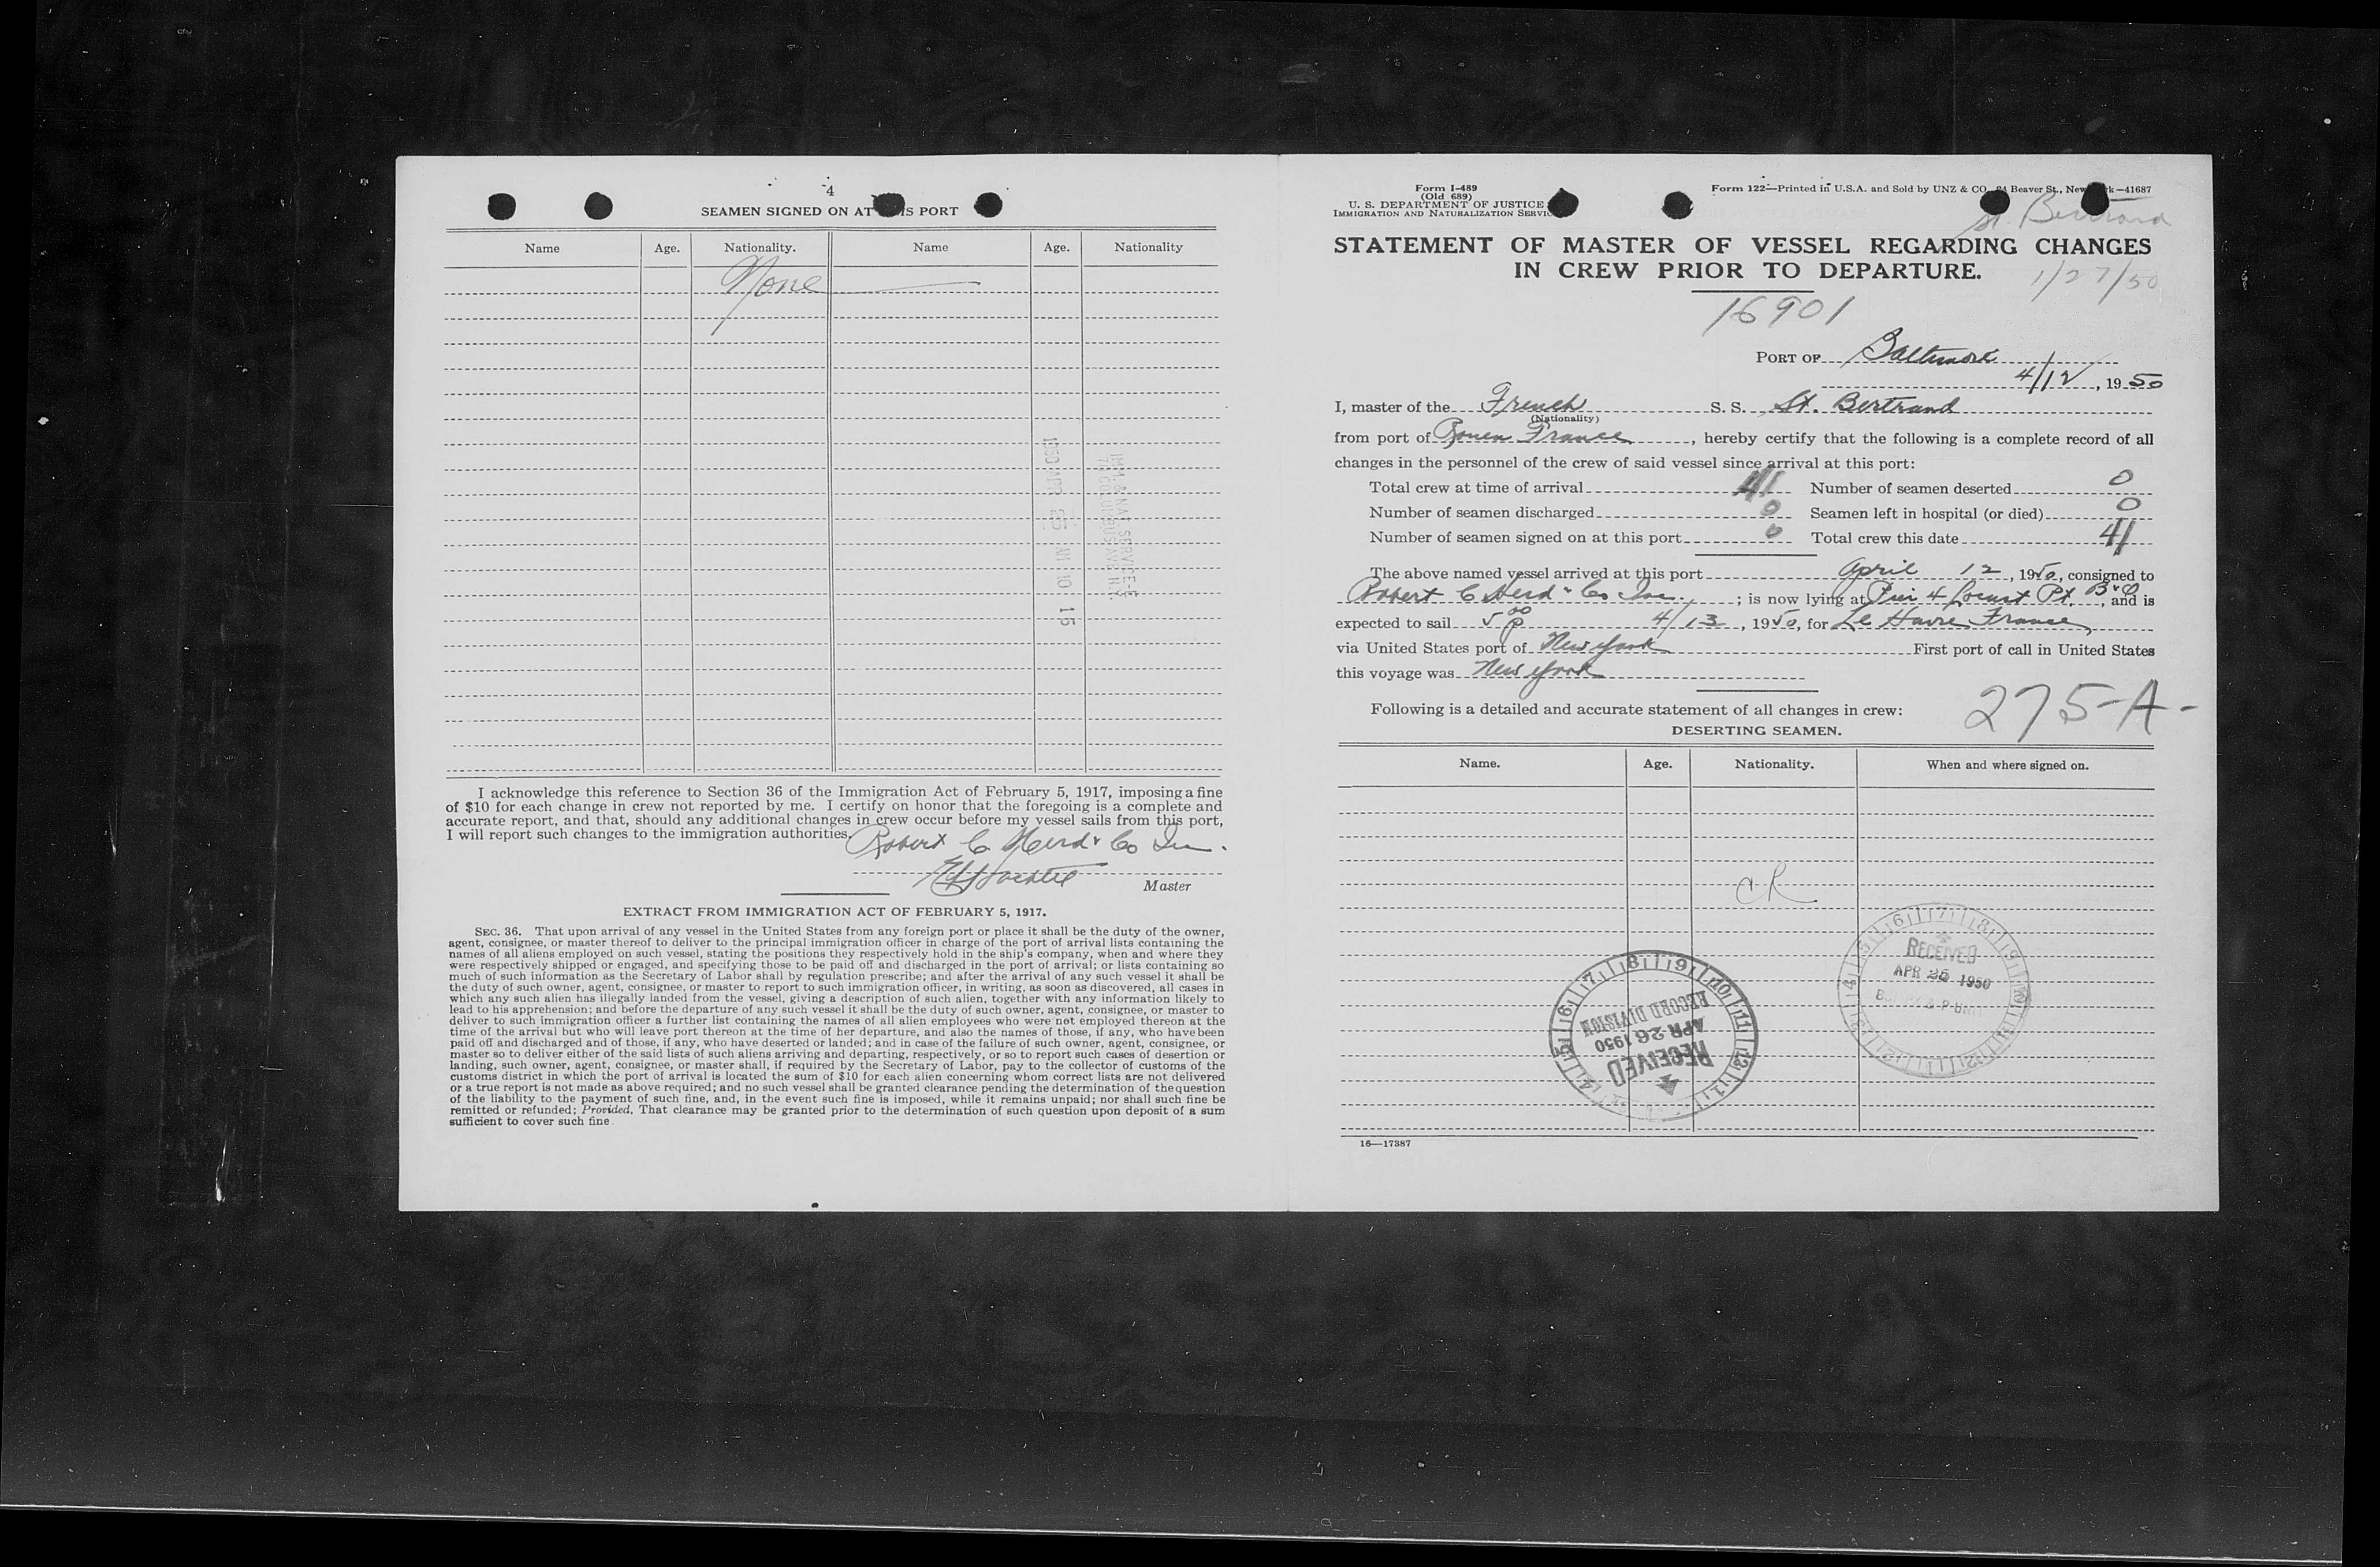 4
SEAMEN SIGNED ON AT THIS PORT
Name Age. Nationality. Name Age. Nationality
None
1950 APR 25 AM 10 15
IMM. & NAT. SERVICE
I acknowledge this reference to Section 36 of the Immigration Act of February 5, 1917, imposing a fine
of $10 for each change in crew not reported by me. I certify on honor that the foregoing is a complete and
accurate report, and that, should any additional changes in crew occur before my vessel sails from this port,
I will report such changes to the immigration authorities.
Robert C Herd & Co Inc.
Master
EXTRACT FROM IMMIGRATION ACT OF FEBRUARY 5, 1917.
SEC. 36. That upon arrival of any vessel in the United States from any foreign port or place it shall be the duty of the owner,
agent, consignee, or master thereof to deliver to the principal immigration officer in charge of the port of arrival lists containing the
names of all aliens employed on such vessel, stating the positions they respectively hold in the ship's company, when and where they
were respectively shipped or engaged, and specifying those to be paid off and discharged in the port of arrival; or lists containing so
much of such information as the Secretary of Labor shall by regulation prescribe; and after the arrival of any such vessel it shall be
the duty of such owner, agent, consignee, or master to report to such immigration officer, in writing, as soon as discovered, all cases in
which any such alien has illegally landed from the vessel, giving a description of such alien, together with any information likely to
lead to his apprehension; and before the departure of any such vessel it shall be the duty of such owner, agent, consignee, or master to
deliver to such immigration officer a further list containing the names of all alien employees who were not employed thereon at the
time of the arrival but who will leave port thereon at the time of her departure, and also the names of those, if any, who have been
paid off and discharged and of those, if any, who have deserted or landed; and in case of the failure of such owner, agent, consignee, or
master so to deliver either of the said lists of such aliens arriving and departing, respectively, or so to report such cases of desertion or
landing, such owner, agent, consignee, or master shall, if required by the Secretary of Labor, pay to the collector of customs of the
customs district in which the port of arrival is located the sum of $10 for each alien concerning whom correct lists are not delivered
or a true report is not made as above required; and no such vessel shall be granted clearance pending the determination of the question
of the liability to the payment of such fine, and, in the event such fine is imposed, while it remains unpaid; nor shall such fine be
remitted or refunded; Provided, That clearance may be granted prior to the determination of such question upon deposit of a sum
sufficient to cover such fine.
Form I-489
(Old 689)
U. S. DEPARTMENT OF JUSTICE
IMMIGRATION AND NATURALIZATION SERVICE
Form 122—Printed in U.S.A. and Sold by UNZ & CO. 24 Beaver St., New York—41687
St. Bertrand
STATEMENT OF MASTER OF VESSEL REGARDING CHANGES
IN CREW PRIOR TO DEPARTURE.
1/27/50
16901
PORT OF Baltimore
4/12, 1950
I, master of the French S. S. St. Bertrand
(Nationality)
from port of Rouen France, hereby certify that the following is a complete record of all
changes in the personnel of the crew of said vessel since arrival at this port:
Total crew at time of arrival 41 Number of seamen deserted 0
Number of seamen discharged 0 Seamen left in hospital (or died) 0
Number of seamen signed on at this port 0 Total crew this date 41
The above named vessel arrived at this port April 12, 1950, consigned to
Robert C Herd & Co Inc.; is now lying at Pier 4 Locust Pt. B&O, and is
expected to sail 5 00 p 4/13, 1950, for Le Havre, France,
via United States port of New York First port of call in United States
this voyage was New York
275-A-
Following is a detailed and accurate statement of all changes in crew:
DESERTING SEAMEN.
Name. Age. Nationality. When and where signed on.
CR
RECEIVED
APR 25 1950
RECEIVED
APR 26 1950
RECORD DIVISION
16—17387